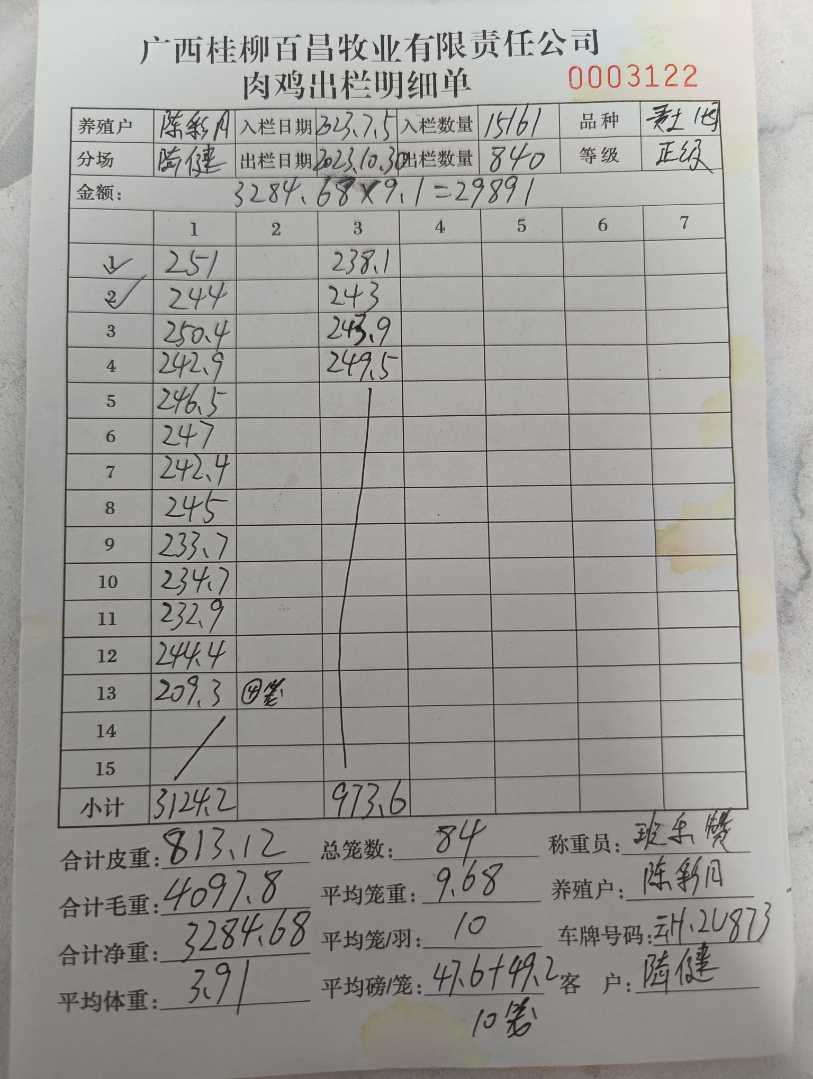 广西桂柳百昌牧业有限责任公司
肉鸡出栏明细单 0003122
养殖户 陈彩月 入栏日期 2023.7.5 入栏数量 15161 品种
分场 陶健 出栏日期 2023.10.30 出栏数量 840 等级 正级
金额: 3284.68×9.1=29891
1 2 3 4 5 6 7
1 251 238.1
2 244 243
3 250.4 243.9
4 242.9 249.5
5 246.5
6 247
7 242.4
8 245
9 233.7
10 234.7
11 232.9
12 244.4
13 209.3 ④笼
14
15
小计 3124.2 973.6
合计皮重: 813.12 总笼数: 84 称重员: 班乐赞
合计毛重: 4097.8 平均笼重: 9.68 养殖户: 陈彩月
合计净重: 3284.68 平均笼/羽: 10 车牌号码: 云H.2U873
平均体重: 3.91 平均磅/笼: 47.6+49.2 客 户: 陶健
10笼